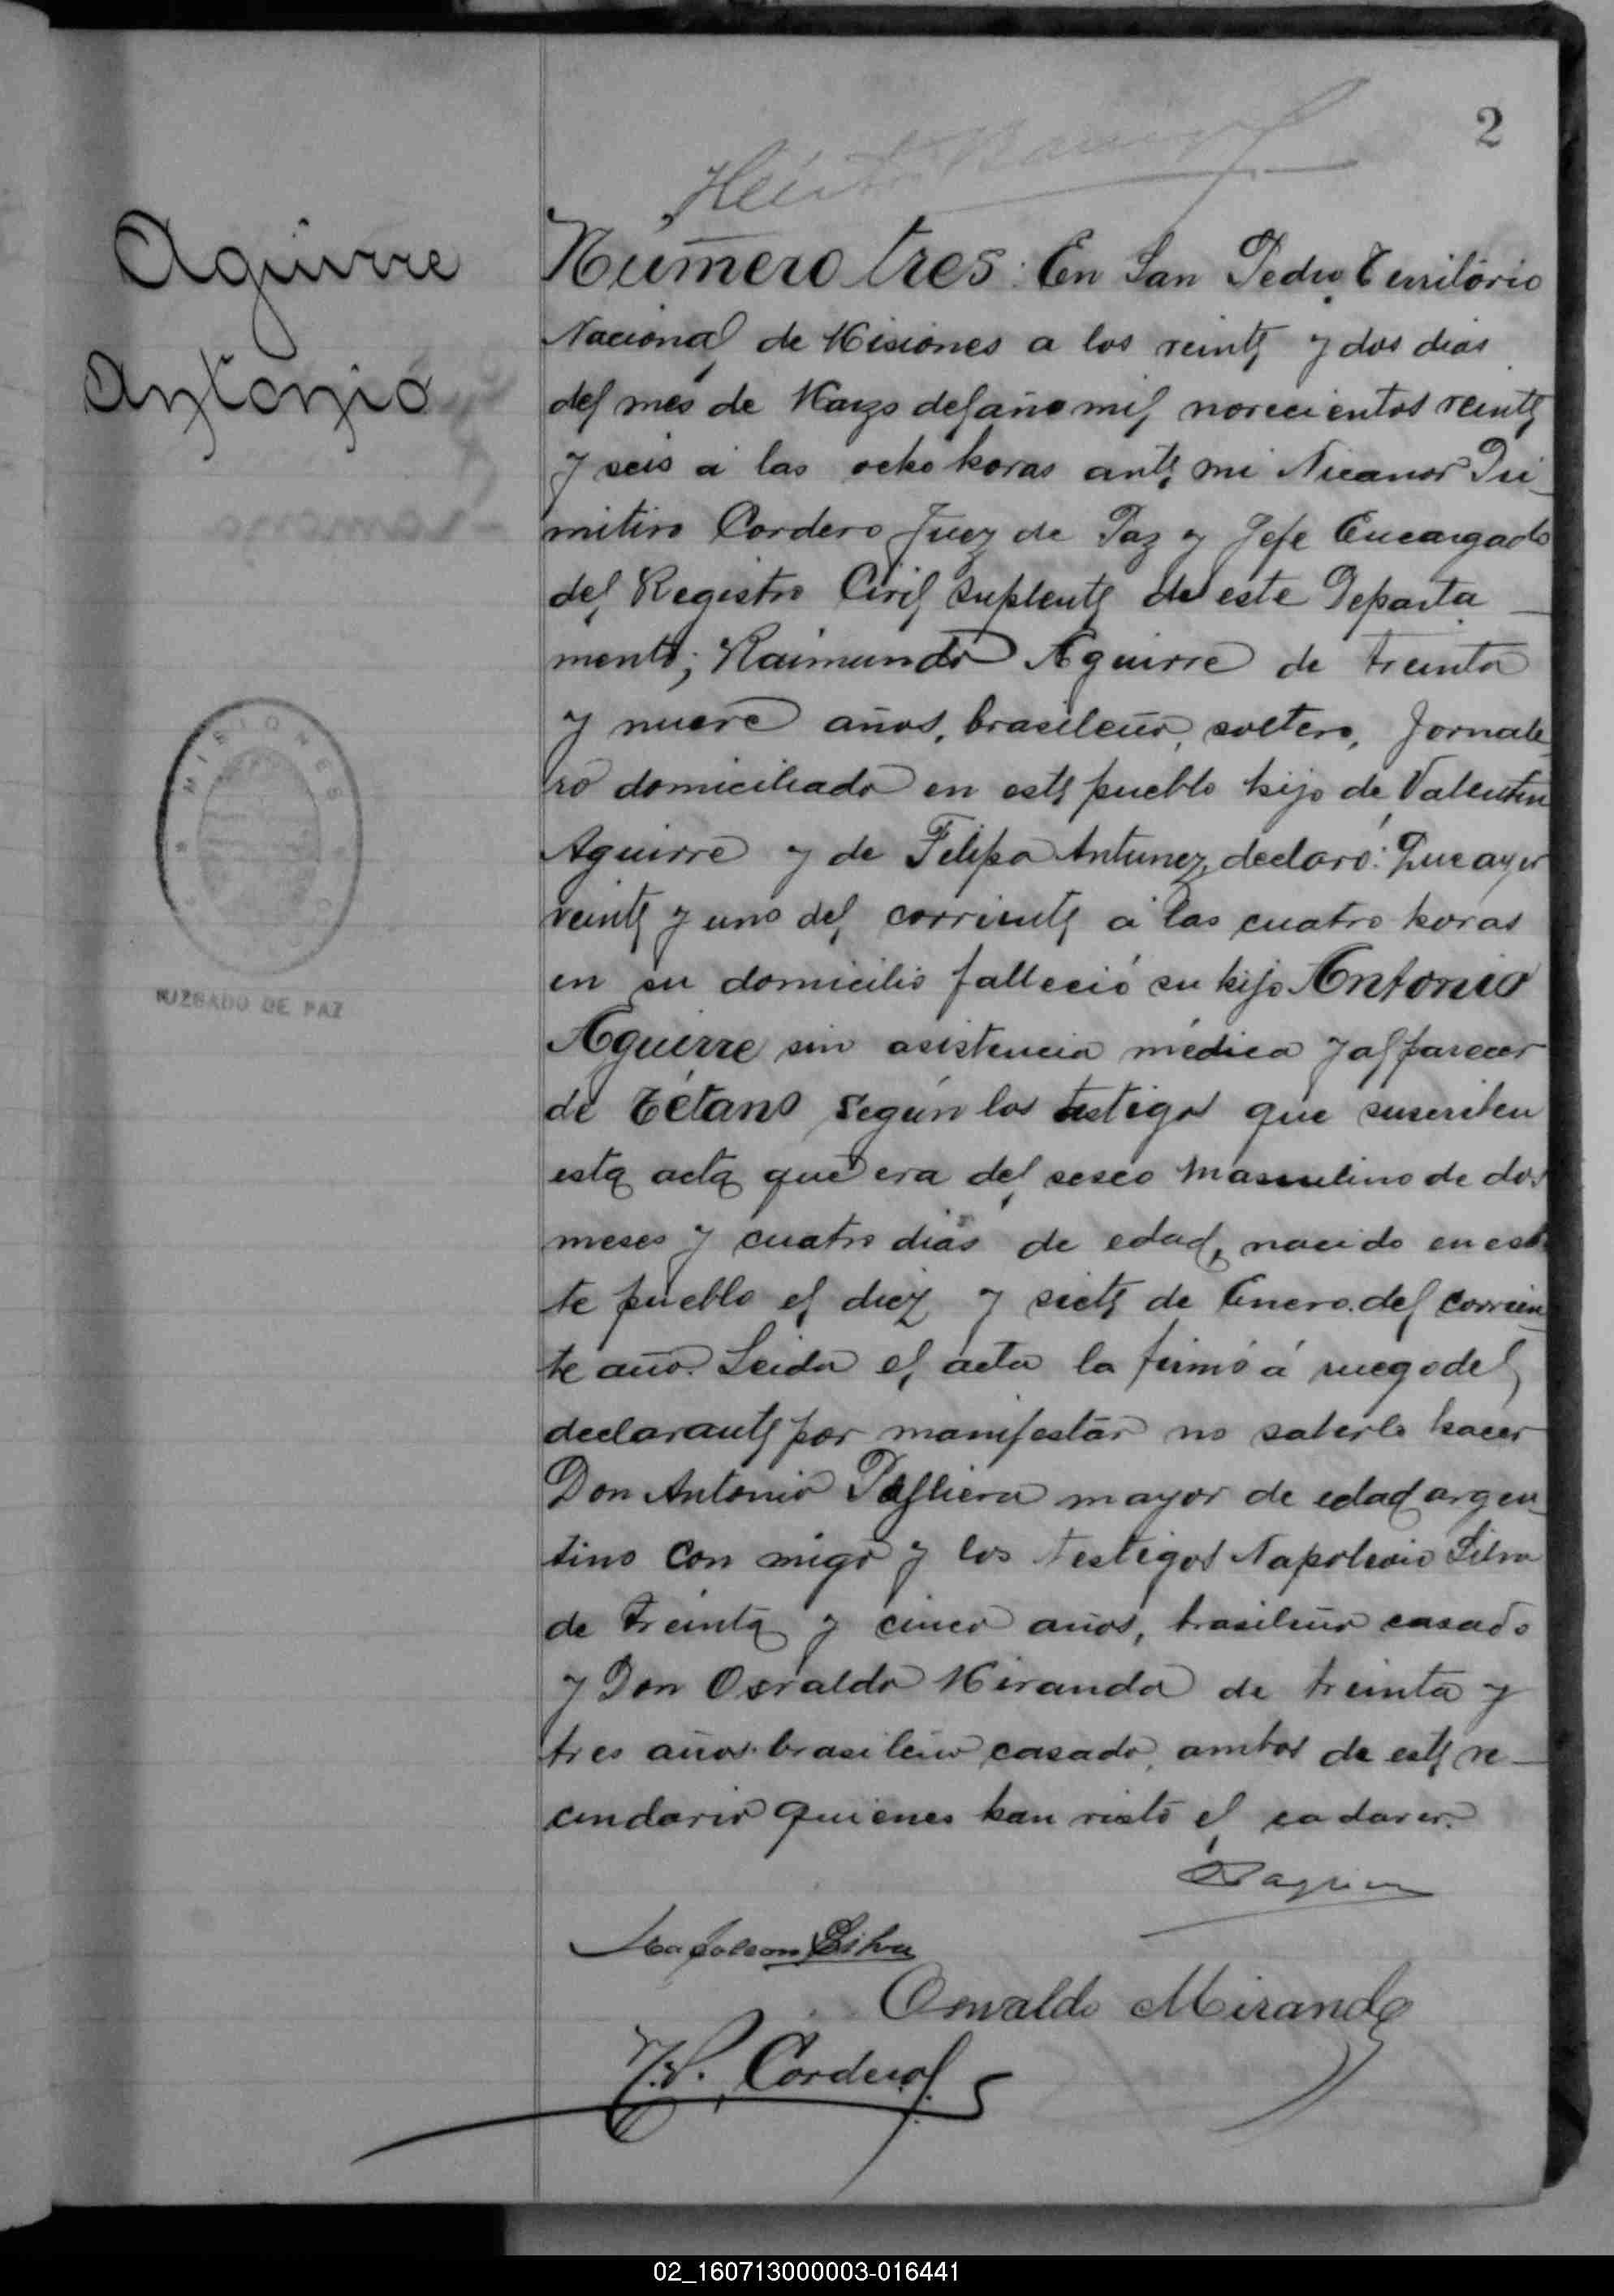 2
Aguirre
Antonio
Número tres: En San Pedro Territorio
Nacional de Misiones a los veinte y dos dias
del mes de Marzo del año mil novecientos veinte
y seis á las ocho horas ante mi Nicanor Pri-
mitivo Cordero Juez de Paz y Jefe Encargado
del Registro Civil suplente de este Departa-
mento; Raimundo Aguirre de treinta
y nueve años, brasileño, soltero, Jornale
ro domiciliado en este pueblo hijo de Valentin
Aguirre y de Felipa Antunez, declaró: Que ayer
veinte y uno del corriente á las cuatro horas
en su domicilio falleció su hijo Antonio
Aguirre sin asistencia médica y al parecer
de Tétano según los testigos que suscriben
esta acta que era del sexo masculino de dos
meses y cuatro dias de edad, nacido en es
te pueblo el diez y siete de Enero del corrien
te año. Leida el acta la firmó á ruego del
declarante por manifestar no saberlo hacer
Don Antonio mayor de edad argen-
tino con migo y los testigos Napoleón Silva
de treinta y cinco años, brasileño casado
y Don Osvaldo Miranda de treinta y
tres años brasileño casado, ambos de este ve-
cindario quienes han visto el cadaver.
Napoleon Silva
Osvaldo Miranda
N.P. Cordero
MISIONES
JUZGADO DE PAZ
02_160713000003-016441